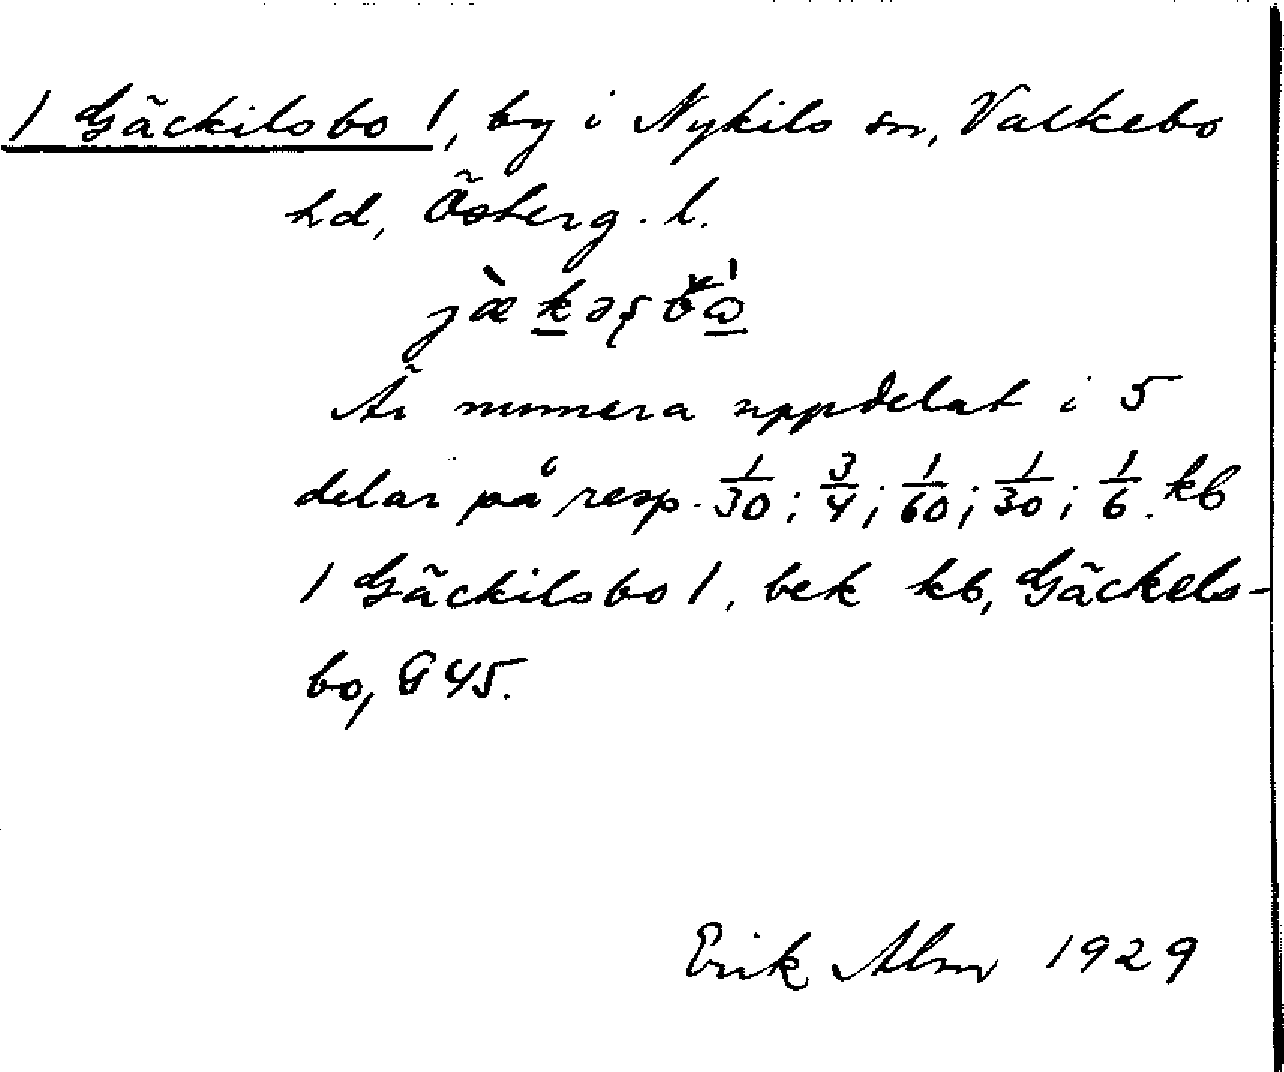 / Gäckilsbo /, by i Nykils sn, Valkebo
hd, Österg. l.
Är numera uppdelat i 5
delar på resp. 1/30; 3/4; 1/60; 1/30; 1/6. kb
/ Gäckilsbo /, bek kb, Gäckels-
bo, G 45.
Erik Alm 1929